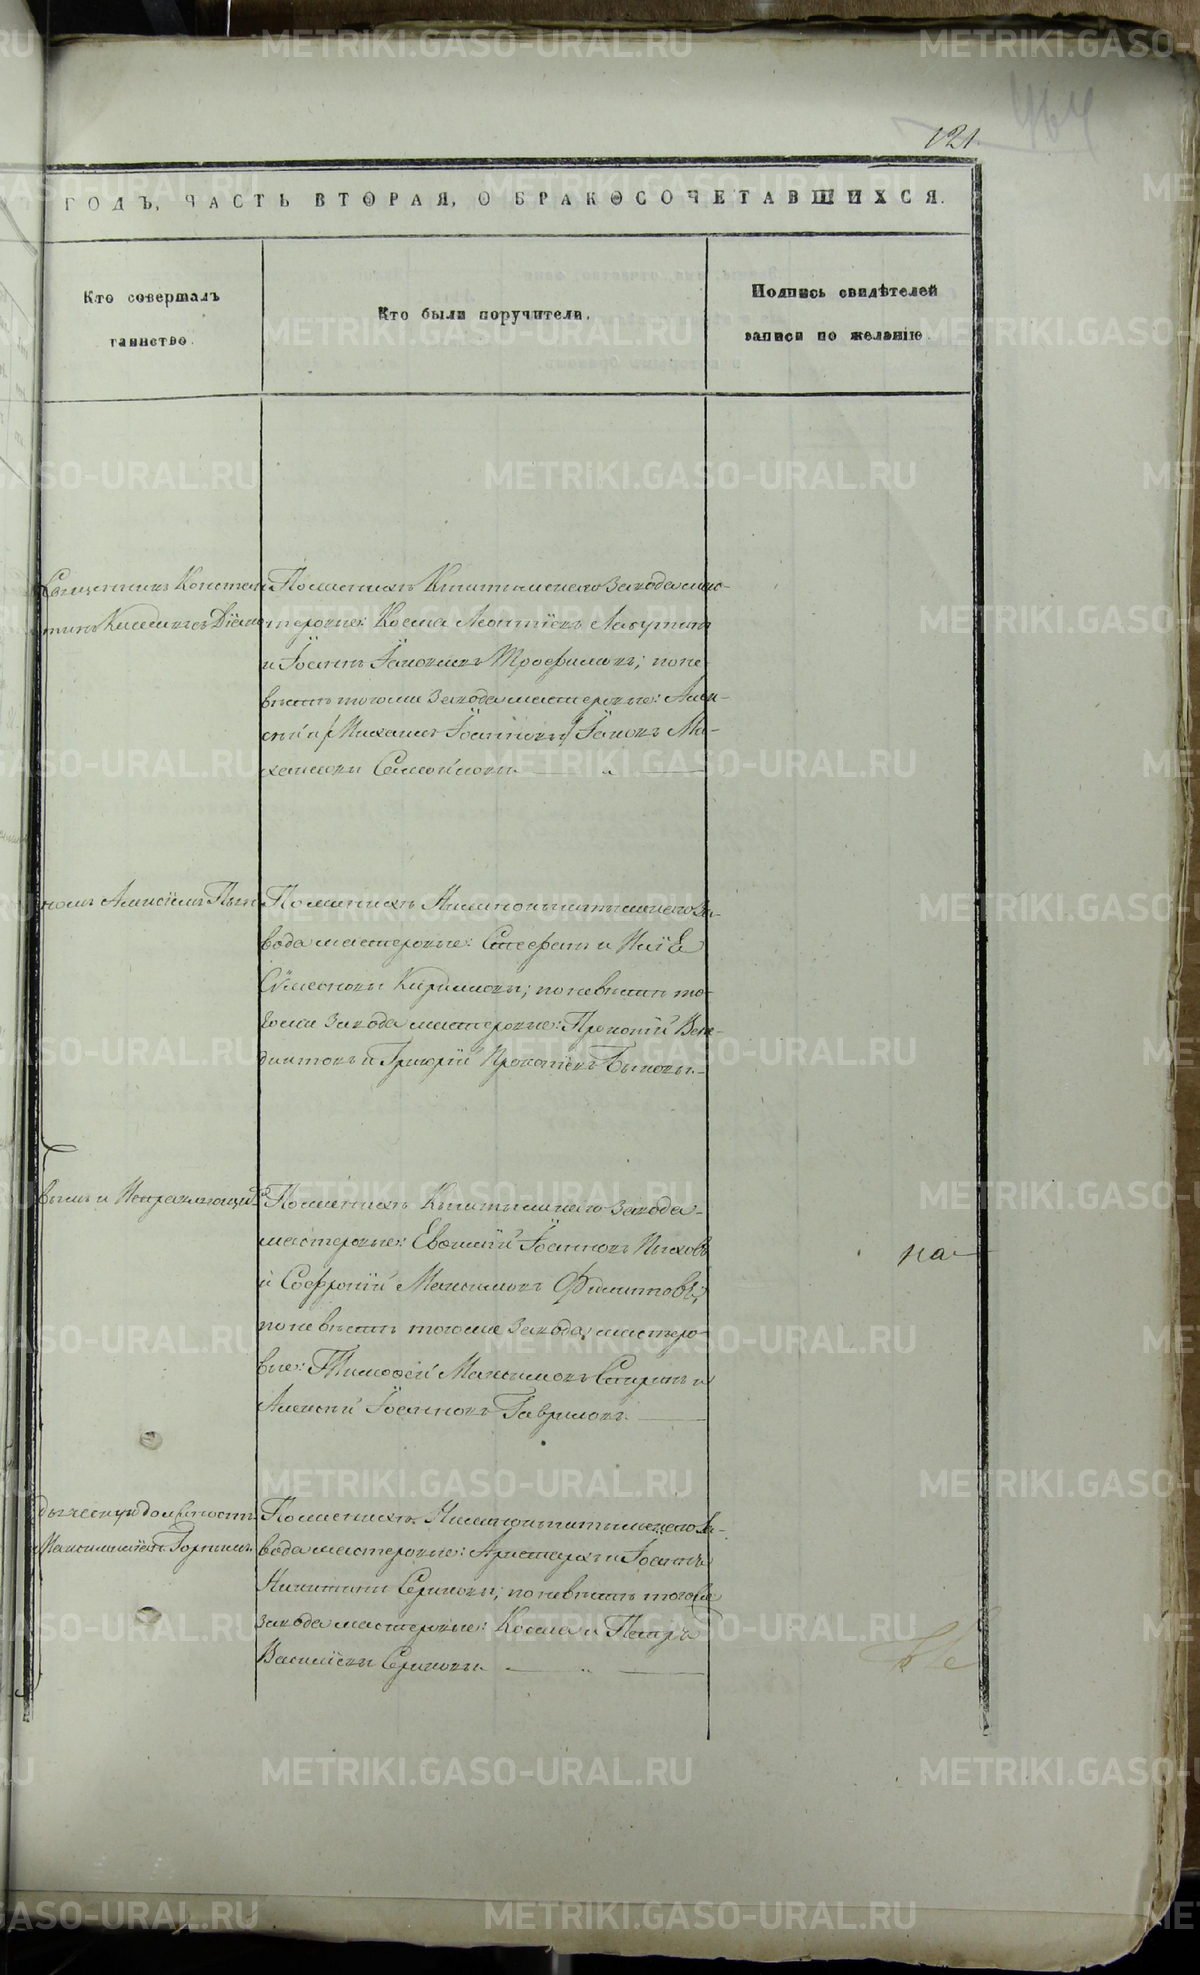 121
464
ГОДЪ, ЧАСТЬ ВТОРАЯ, О БРАКОСОЧЕТАВШИХСЯ.
Кто совершалъ
таинство.
Кто были поручители.
Подпись свидѣтелей
записи по желанію.
Священникъ Констан
По женихѣ Кыштымскаго завода мас-
теровые: Косма Леонтіевъ Лагутинъ
и Іоаннъ Іаковлевъ Трофимовъ; по не-
вѣстѣ тогоже завода мастеровые: Алек-
сѣй и Михаилъ Іоанновы, Іаковъ Ми-
хаиловъ Самойловы.
номъ Алексіемъ
По женихѣ Нижнокыштымскаго за-
вода мастеровые: Стефанъ и Илія
Сѵмеоновы Кирилловы; по невѣстѣ то-
гоже завода мастеровые: Прокопій Вене-
диктовъ и Григорій Прокопіевъ Быковы.
вымъ и Исправляющій
По женихѣ Кыштымскаго завода
мастеровые: Евѳимій Іоанновъ
и Софроній Максимовъ Филиповъ;
по невѣстѣ тогоже завода мастеро-
вые: Тимоѳей Максимовъ и
Алексѣй Іоанновъ Гавриловъ.
на
должность
По женихѣ Нижнокыштымскаго за-
вода мастеровые: Аристархъ и Іоаннъ
Никитины Сериковы; по невѣстѣ тогоже
завода мастеровые: Косма и Петръ
Василіевы Сериковы.
METRIKI.GASO-URAL.RU